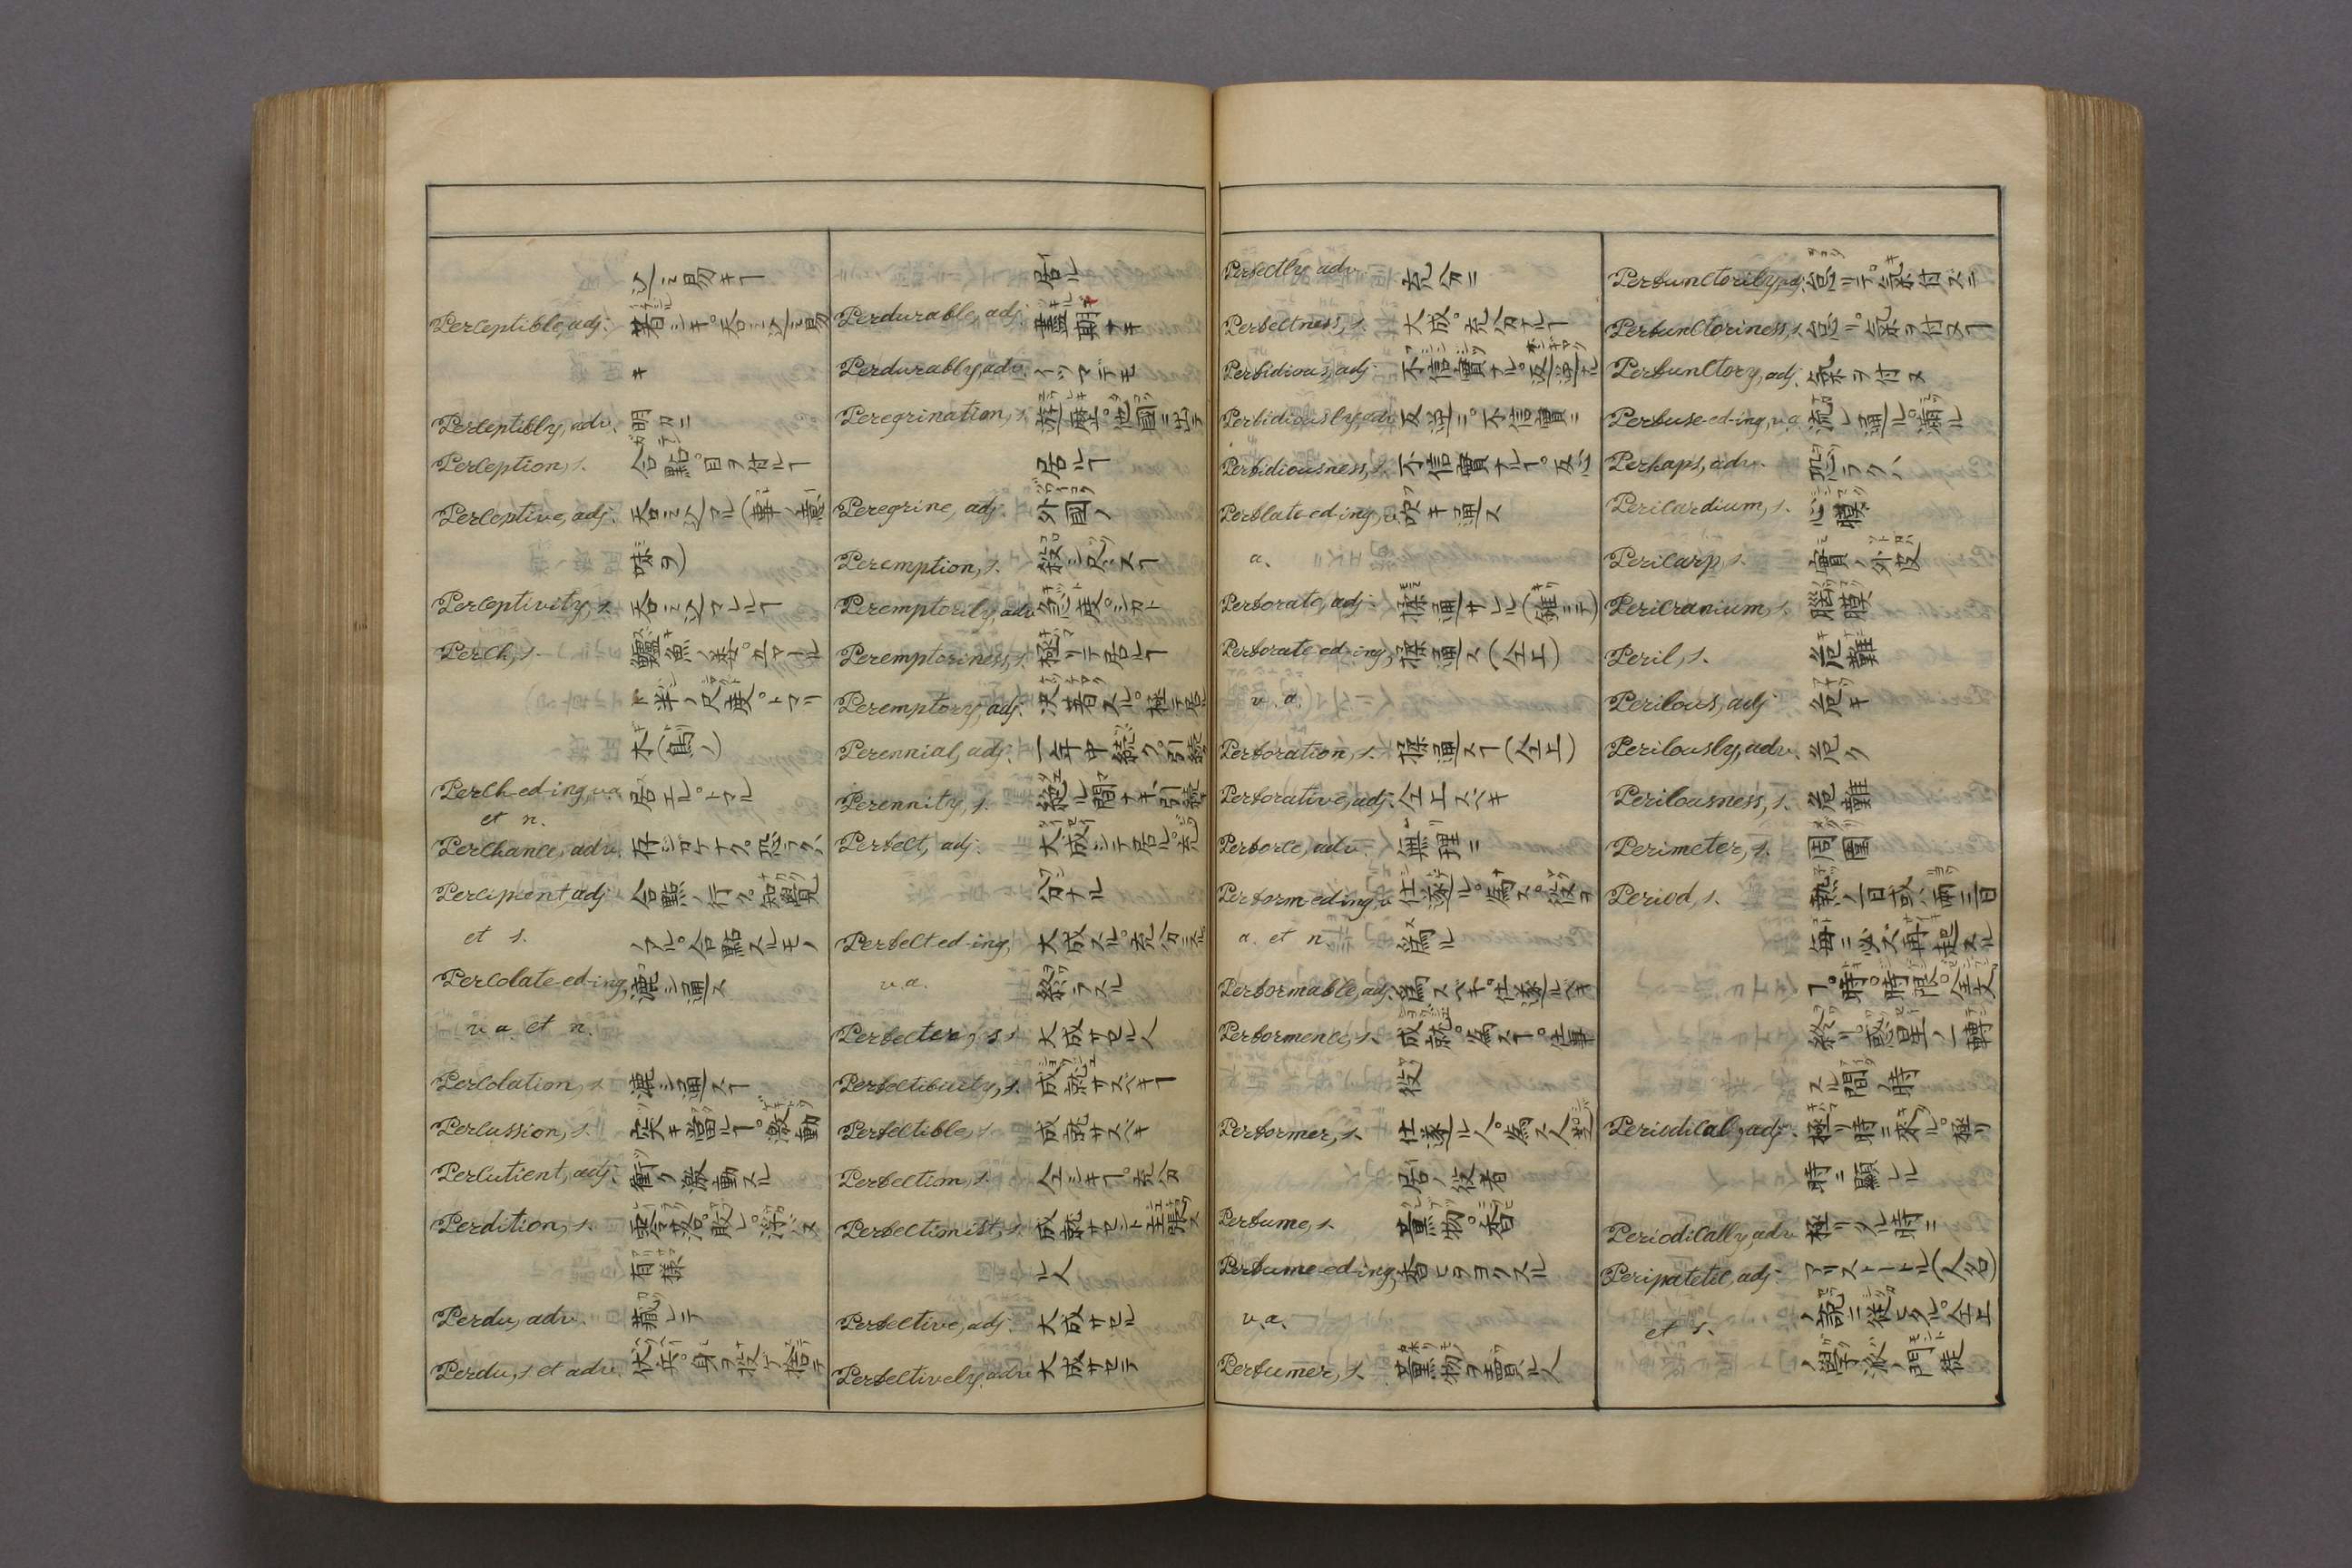 込ミ易キヿ
Perceptible, adj. 著シキ。呑ミ込ミ易
キ
Perceptibly, adv. 明カニ
Perception, s. 合點。目ヲ付ルヿ
Perceptive, adj. 呑ミ込マル(事ノ意
味ヲ)
Perceptivity, s. 呑ミ込マレルヿ
Perch, s. 鱸魚ノ類。
半ノ尺度。トマリ
木(鳥ノ)
Perch-ed-ing, v.a. 居エル。トマル
et n.
Perchance, adv. 存ジガケナク。恐ラクハ
Percipient, adj. 合點ノ行ク。知覺
et s. ノアル。合點スルモノ
Percolate-ed-ing, 漉シ通ス
v. a. et n.
Percolation, s. 漉シ通スヿ
Percussion, s. 突キ當ルヿ。激動
Percutient, adj. 衝ク激動スル
Perdition, s. 零落。敗レ。
有様
Perdu, adv. 藏レテ
Perdu, s. et adv. 伏兵。身ヲ投ゲ捨テ
居ル
Perdurable, adj. 盡期ナキ
Perdurably, adv. イツマデモ
Peregrination, s. 遊歴。他國ニ出テ
居ルヿ
Peregrine, adj. 外國ノ
Peremption, s. 殺シ尽スヿ
Peremptorily, adv. 急度。シカト
Peremptoriness, s. 極リテ居ルヿ
Peremptory, adj. 決着スル。極テ居
Perennial, adj. 一年中続ク。引続
Perennity, s. 絶ル間ナキ引続
Perfect, adj. 大成シテ居ル。充
分ナル
Perfect-ed-ing, 大成スル。充分ニスル
v.a. 終ラスル
Perfecter, s. 大成サセル人
Perfectibility, s. 成就サスベキヿ
Perfectible, 成就サスベキ
Perfection, s. 全シキヿ。充分
Perfectionist, s. 成就サセント主張ス
ル人
Perfective, adj. 大成サセル
Perfectively, adv. 大成サセテ
Perfectly, adv. 充分ニ
Perfectness, s. 大成。充分ナルヿ
Perfidious, adj. 不信實ナル。反逆ナル
Perfidiously, adv. 反逆ニ。不信實ニ
Perfidiousness, s. 不信實ナルヿ。反心
Perflate-ed-ing, v. 吹キ通ス
a.
Perforate, adj. 揉通サレル(錐ニテ)
Perforate-ed-ing, 揉通ス(仝上)
v. a.
Perforation, s. 揉通スヿ(仝上)
Perforative, adj. 仝上スベキ
Perforce, adv. 無理ニ
Perform-ed-ing, v. 仕遂ル。為ス。役ヲ
a. et n. 為ル
Performable, adj. 為スベキ。仕遂ルベキ
Performence, s. 成就。為スヿ。仕事
役
Performer, s. 仕遂ル人。為ス人
居ノ役者
Perfume, s. 薫物。香
Perfume-ed-ing, 香ヒヲヨクスル
v.a.
Perfumer, s. 薫物ヲ賣ル人
Perfunctorily, adj. 怠リテ。氣付ズニ
Perfunctoriness, s. 怠リ。氣ヲ付ヌヿ
Perfunctory, adj. 氣ヲ付ヌ
Perfuse-ed-ing, v.a. 流レ通ル。満ル
Perhaps, adv. 恐ラクハ
Pericardium, s. 心膜
Pericarp, s. 實ノ外皮
Pericranium, s. 腦膜
Peril, s. 危難
Perilous, adj. 危キ
Perilously, adv. 危ク
Perilousness, s. 危難
Perimeter, s. 周圍
Period, s. 熱ノ一日或ハ両三日
毎ニ必ズ再起スル
ヿ。時。時限。全文
終リ。惑星ノ一轉
スル間ノ時
Periodical, adj. 極リ時ニ来ル。極リ
時ニ顯レル
Periodically, adv. 極リタル時ニ
Peripatetic, adj. アリストートル(人名)
et s. ノ説ニ従ヒタル。仝上
ノ學派ノ門徒